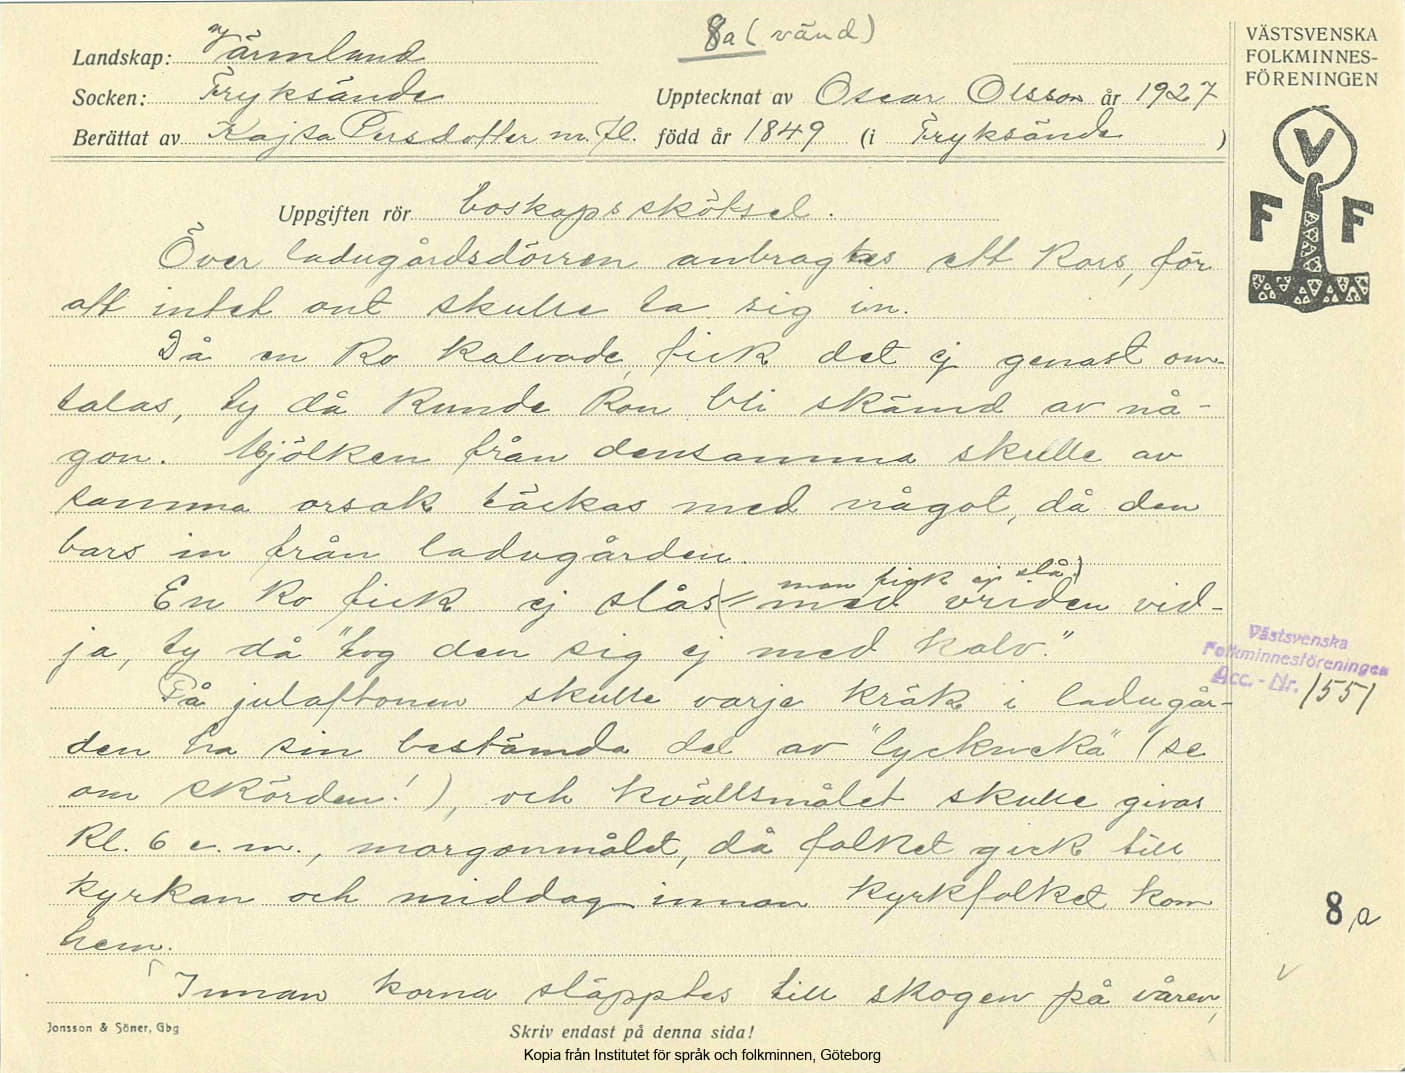 8a (vänd)
Landskap: Värmland
Socken: Fryksände
Upptecknat av Oscar Olsson år 1927
Berättat av Kajsa Persdotter m. fl. född år 1849 (i Fryksände )
VÄSTSVENSKA
FOLKMINNES-
FÖRENINGEN
V
F F
Uppgiften rör boskapsskötsel.
Över ladugårdsdörren anbragtes ett kors, för
att intet ont skulle ta sig in.
Då en ko kalvade, fick det ej genast om-
talas, ty då kunde kon bli skämd av nå-
gon. Mjölken från densamma skulle av
samma orsak täckas med något, då den
bars in från ladugården.
man fick ej slå)
En ko fick ej slås (= med vriden vid-
ja, ty då "tog den sig ej med kalv."
På julaftonen skulle varje kräk i ladugår-
den ha sin bestämda del av "lycknekä" (se
om skörden!), och kvällsmålet skulle givas
kl. 6 e.m., morgonmålet, då folket gick till
kyrkan och middag innan kyrkfolket kom
hem.
Innan korna släpptes till skogen på våren,
Västsvenska
Folkminnesföreningen
Acc. - Nr. 1551
8 a
Jonsson & Söner, Gbg
Skriv endast på denna sida!
Kopia från Institutet för språk och folkminnen, Göteborg